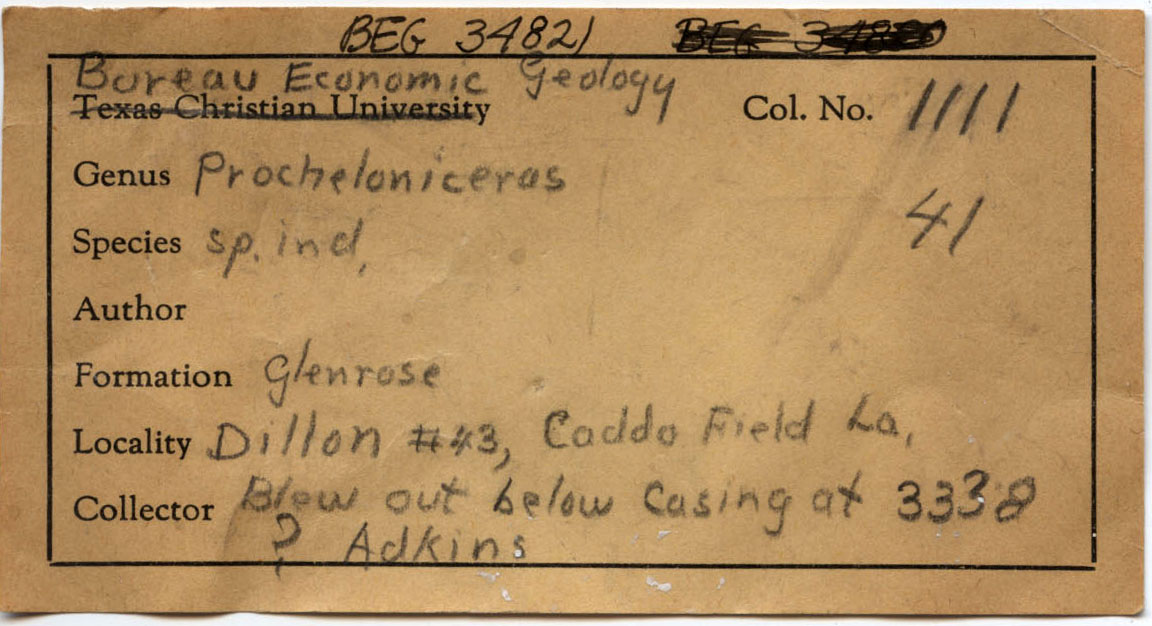 BEG 34821 BEG 34820
Bureau Economic Geology
Texas Christian University Col. No. 1111
Genus Procheloniceras
41
Species sp. ind,
Author
Formation Glenrose
Locality Dillon #43, Caddo Field La,
Collector Blew out below casing at 3338
? Adkins